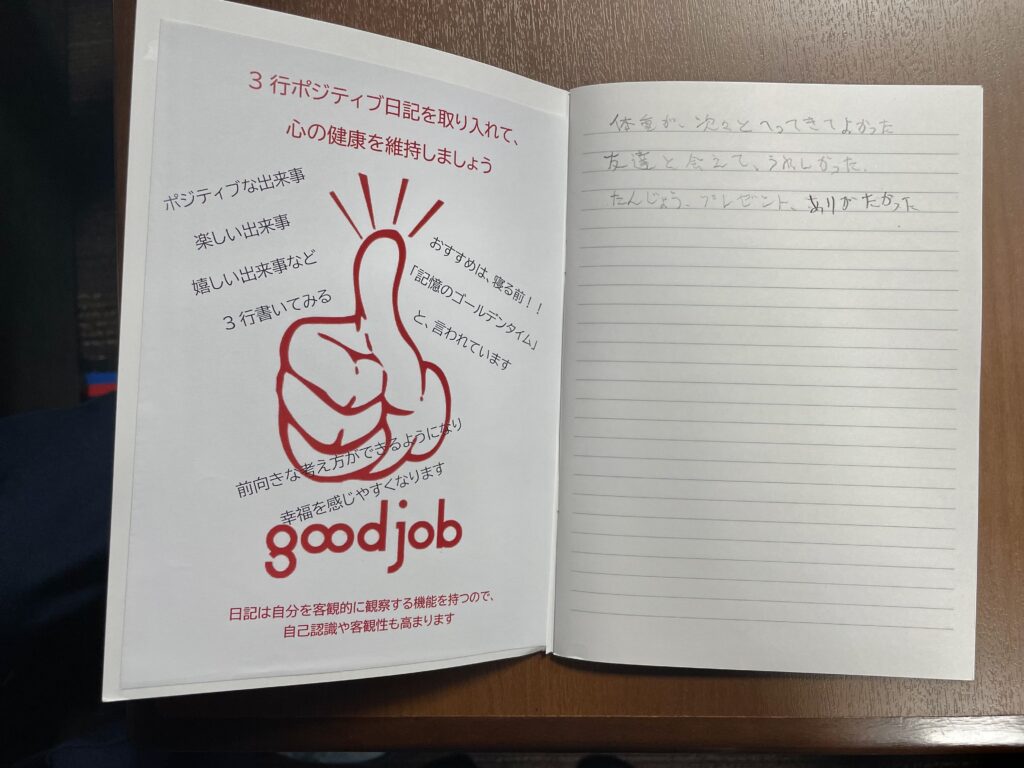 3行ポジティブ日記を取り入れて、
心の健康を維持しましょう
ポジティブな出来事
楽しい出来事
嬉しい出来事など
3行書いてみる
おすすめは、寝る前！！
「記憶のゴールデンタイム」
と、言われています
前向きな考え方ができるようになり
幸福を感じやすくなります
good job
日記は自分を客観的に観察する機能を持つので、
自己認識や客観性も高まります
体重が、次々とへってきてよかった
友達と会えて、うれしかった.
たんじょう、プレゼント、ありがたかった